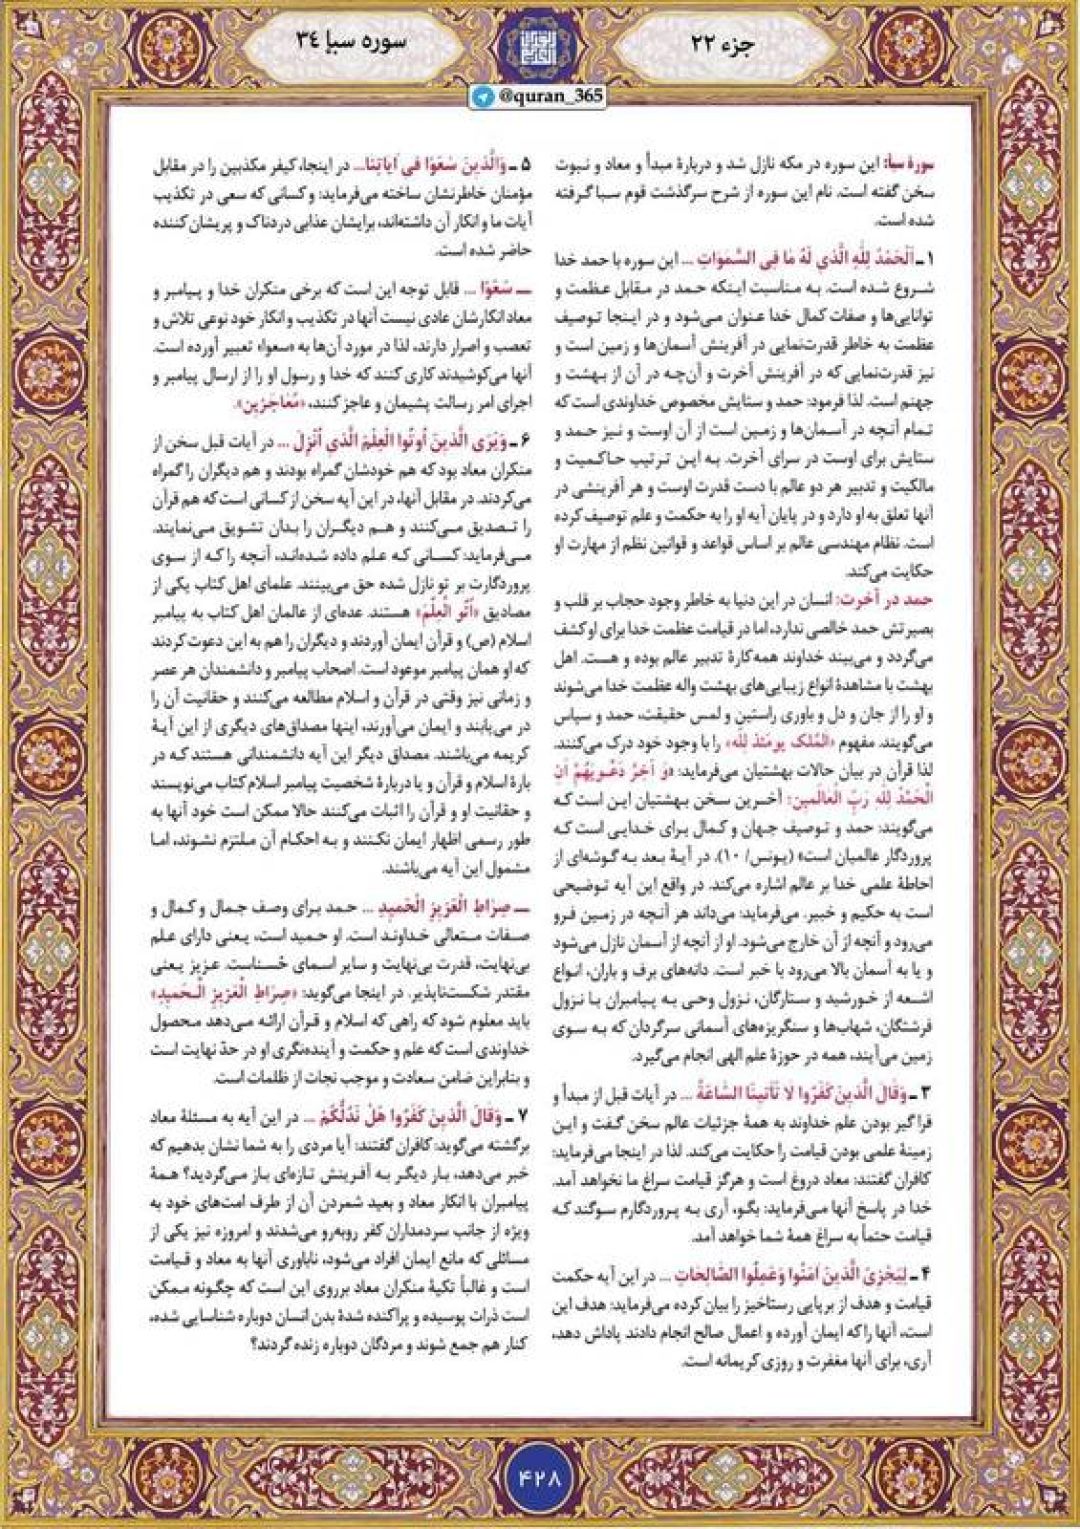 جزء ۲۲
سوره سبإ ۳۴
@quran_365
سورهٔ سبأ: این سوره در مکه نازل شد و دربارهٔ مبدأ و معاد و نبوت
سخن گفته است. نام این سوره از شرح سرگذشت قوم سبا گرفته
شده است.
۱ ـ اَلْحَمْدُ لِلَّهِ الَّذی لَهُ مَا فِی السَّمٰوَاتِ ... این سوره با حمد خدا
شروع شده است. به مناسبت اینکه حمد در مقابل عظمت و
توانایی‌ها و صفات کمال خدا عنوان می‌شود و در اینجا توصیف
عظمت به خاطر قدرت‌نمایی در آفرینش آسمان‌ها و زمین است و
نیز قدرت‌نمایی که در آفرینش آخرت و آن‌چه در آن از بهشت و
جهنم است. لذا فرمود: حمد و ستایش مخصوص خداوندی است که
تمام آنچه در آسمان‌ها و زمین است از آن اوست و نیز حمد و
ستایش برای اوست در سرای آخرت. به این ترتیب حاکمیت و
مالکیت و تدبیر هر دو عالم با دست قدرت اوست و هر آفرینشی در
آنها تعلق به او دارد و در پایان آیه او را به حکمت و علم توصیف کرده
است. نظام مهندسی عالم بر اساس قواعد و قوانین نظم از مهارت او
حکایت می‌کند.
حمد در آخرت: انسان در این دنیا به خاطر وجود حجاب بر قلب و
بصیرتش حمد خالصی ندارد، اما در قیامت عظمت خدا برای او کشف
می‌گردد و می‌بیند خداوند همه کارهٔ تدبیر عالم بوده و هست. اهل
بهشت با مشاهدهٔ انواع زیبایی‌های بهشت واله عظمت خدا می‌شوند
و او را از جان و دل و باوری راستین و لمس حقیقت، حمد و سپاس
می‌گویند. مفهوم «المُلک یومئذ لله» را با وجود خود درک می‌کنند.
لذا قرآن در بیان حالات بهشتیان می‌فرماید: «وَ آخِرُ دَعْوٰیهُمْ اَنِ
الْحَمْدُ لِلهِ رَبِّ الْعَالَمین: آخرین سخن بهشتیان این است که
می‌گویند: حمد و توصیف جهان و کمال برای خدایی است که
پروردگار عالمیان است» (یونس/ ۱۰). در آیهٔ بعد به گوشه‌ای از
احاطهٔ علمی خدا بر عالم اشاره می‌کند. در واقع این آیه توضیحی
است به حکیم و خبیر. می‌فرماید: می‌داند هر آنچه در زمین فرو
می‌رود و آنچه از آن خارج می‌شود. او از آنچه از آسمان نازل می‌شود
و یا به آسمان بالا می‌رود با خبر است. دانه‌های برف و باران، انواع
اشعه از خورشید و ستارگان، نزول وحی به پیامبران با نزول
فرشتگان، شهاب‌ها و سنگریزه‌های آسمانی سرگردان که به سوی
زمین می‌آیند، همه در حوزهٔ علم الهی انجام می‌گیرد.
۳ ـ وَقَالَ الَّذینَ کَفَرُوا لَا تَأْتینَا السَّاعَةُ ... در آیات قبل از مبدأ و
فرا گیر بودن علم خداوند به همهٔ جزئیات عالم سخن گفت و این
زمینهٔ علمی بودن قیامت را حکایت می‌کند. لذا در اینجا می‌فرماید:
کافران گفتند: معاد دروغ است و هرگز قیامت سراغ ما نخواهد آمد.
خدا در پاسخ آنها می‌فرماید: بگو، آری به پروردگارم سوگند که
قیامت حتماً به سراغ همهٔ شما خواهد آمد.
۴ ـ لِیَجْزِیَ الَّذینَ آمَنُوا وَعَمِلُوا الصَّالِحَاتِ ... در این آیه حکمت
قیامت و هدف از برپایی رستاخیز را بیان کرده می‌فرماید: هدف این
است، آنها را که ایمان آورده و اعمال صالح انجام دادند پاداش دهد،
آری، برای آنها مغفرت و روزی کریمانه است.
۵ ـ وَالَّذینَ سَعَوْا فی آیَاتِنَا... در اینجا، کیفر مکذبین را در مقابل
مؤمنان خاطرنشان ساخته می‌فرماید: و کسانی که سعی در تکذیب
آیات ما و انکار آن داشته‌اند، برایشان عذابی دردناک و پریشان کننده
حاضر شده است.
ـــ سَعَوْا ... قابل توجه این است که برخی منکران خدا و پیامبر و
معاد انکارشان عادی نیست آنها در تکذیب و انکار خود نوعی تلاش و
تعصب و اصرار دارند، لذا در مورد آن‌ها به «سعوا» تعبیر آورده است.
آنها می‌کوشیدند کاری کنند که خدا و رسول او را از ارسال پیامبر و
اجرای امر رسالت پشیمان و عاجز کنند، «مُعَاجِزین».
۶ ـ وَیَرَی الَّذینَ اُوتُوا الْعِلْمَ الَّذی اُنْزِلَ ... در آیات قبل سخن از
منکران معاد بود که هم خودشان گمراه بودند و هم دیگران را گمراه
می‌کردند. در مقابل آنها، در این آیه سخن از کسانی است که هم قرآن
را تصدیق می‌کنند و هم دیگران را بدان تشویق می‌نمایند.
می‌فرماید: کسانی که علم داده شده‌اند، آنچه را که از سوی
پروردگارت بر تو نازل شده حق می‌بینند. علمای اهل کتاب یکی از
مصادیق «اُتُو الْعِلْمَ» هستند. عده‌ای از عالمان اهل کتاب به پیامبر
اسلام (ص) و قرآن ایمان آوردند و دیگران را هم به این دعوت کردند
که او همان پیامبر موعود است. اصحاب پیامبر و دانشمندان هر عصر
و زمانی نیز وقتی در قرآن و اسلام مطالعه می‌کنند و حقانیت آن را
در می‌یابند و ایمان می‌آورند، اینها مصداق‌های دیگری از این آیهٔ
کریمه می‌باشند. مصداق دیگر این آیه دانشمندانی هستند که در
بارهٔ اسلام و قرآن و یا دربارهٔ شخصیت پیامبر اسلام کتاب می‌نویسند
و حقانیت او و قرآن را اثبات می‌کنند حالا ممکن است خود آنها به
طور رسمی اظهار ایمان نکنند و به احکام آن ملتزم نشوند، اما
مشمول این آیه می‌باشند.
ـــ صِرَاطِ الْعَزیزِ الْحَمیدِ ... حمد برای وصف جمال و کمال و
صفات متعالی خداوند است. او حمید است، یعنی دارای علم
بی‌نهایت، قدرت بی‌نهایت و سایر اسمای حُسناست. عزیز یعنی
مقتدر شکست‌ناپذیر. در اینجا می‌گوید: «صِرَاطِ الْعَزیزِ الْحَمیدِ»
باید معلوم شود که راهی که اسلام و قرآن ارائه می‌دهد محصول
خداوندی است که علم و حکمت و آینده‌نگری او در حدّ نهایت است
و بنابراین ضامن سعادت و موجب نجات از ظلمات است.
۷ ـ وَقَالَ الَّذینَ کَفَرُوا هَلْ نَدُلُّکُمْ ... در این آیه به مسئلهٔ معاد
برگشته می‌گوید: کافران گفتند: آیا مردی را به شما نشان بدهیم که
خبر می‌دهد، بار دیگر به آفرینش تازه‌ای باز می‌گردید؟ همهٔ
پیامبران با انکار معاد و بعید شمردن آن از طرف امت‌های خود به
ویژه از جانب سردمداران کفر روبه‌رو می‌شدند و امروزه نیز یکی از
مسائلی که مانع ایمان افراد می‌شود، ناباوری آنها به معاد و قیامت
است و غالباً تکیهٔ منکران معاد برروی این است که چگونه ممکن
است ذرات پوسیده و پراکنده شدهٔ بدن انسان دوباره شناسایی شده،
کنار هم جمع شوند و مردگان دوباره زنده گردند؟
۴۲۸